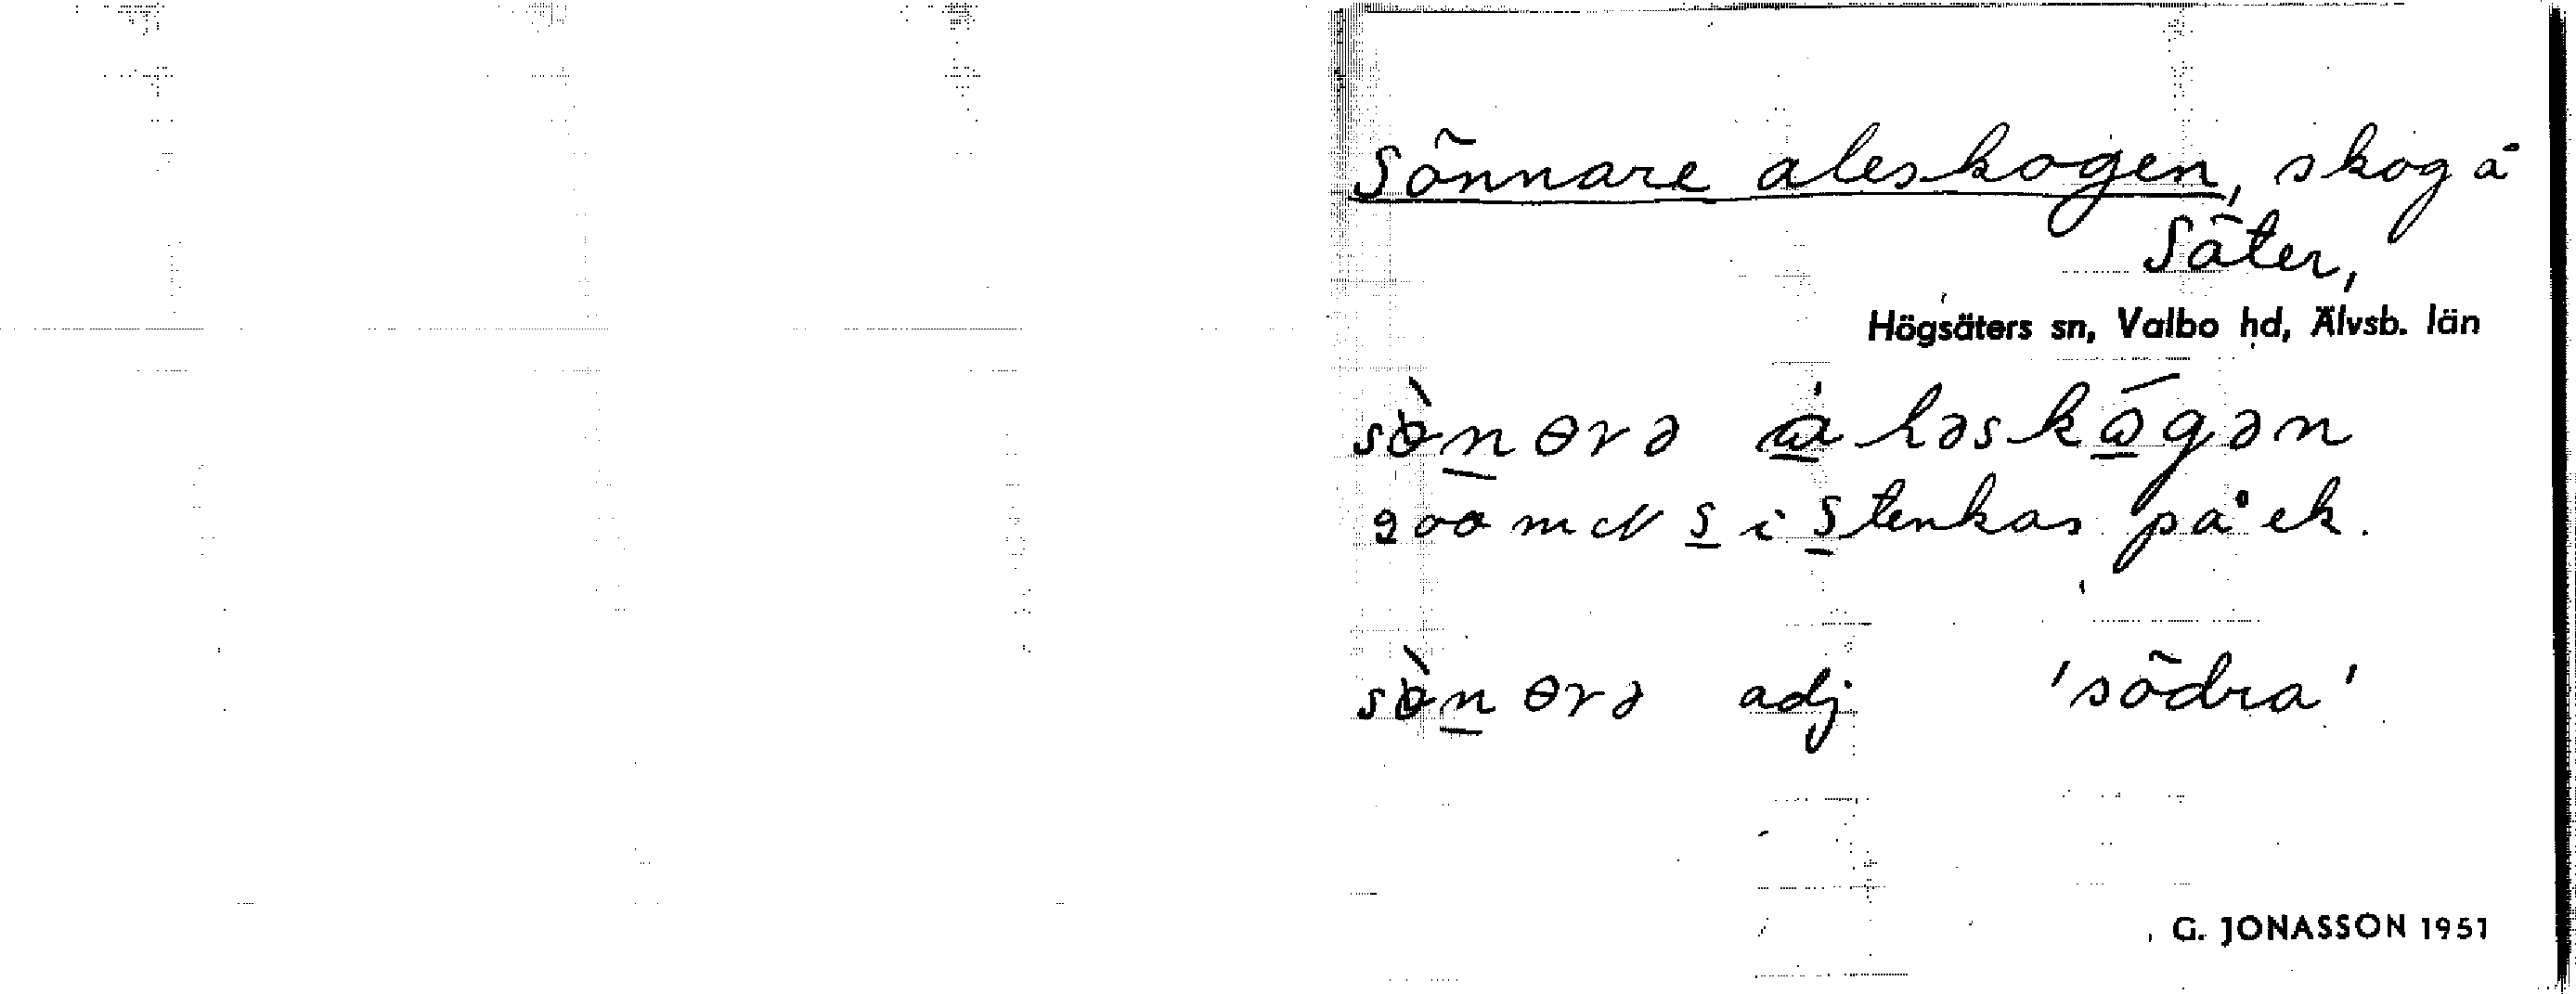 Sönnare aleskogen, skog å
Säter,
Högsäters sn, Valbo hd, Älvsb. län
sònɵrə àləskógən
900 m N S i Stenkas på ek.
sònɵrə adj 'södra'
G. JONASSON 1951